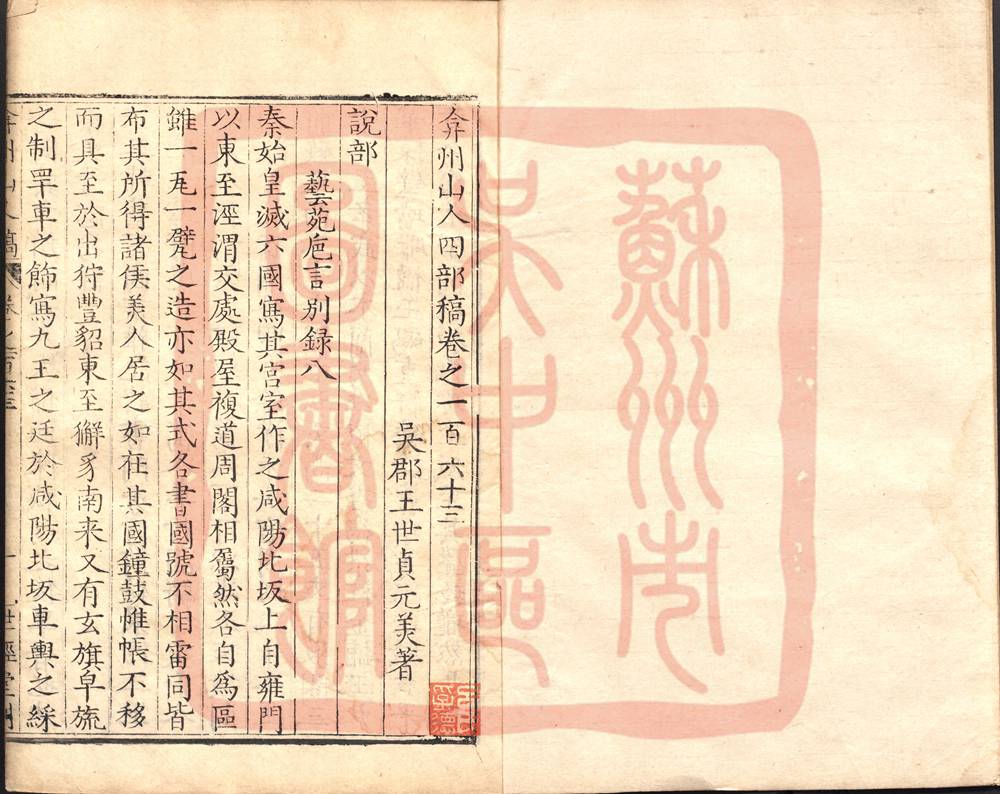 弇州山人四部稿卷之一百六十三
吳郡王世貞元美著
說部
藝苑巵言別録八
秦始皇滅六國寫其宮室作之咸陽北坂上自雍門
以東至涇渭交處殿屋複道周閣相屬然各自爲區
雖一瓦一甓之造亦如其式各書國號不相雷同皆
布其所得諸侯美人居之如在其國鐘鼓帷帳不移
而具至於出狩豐貂東至獬豸南来又有玄旗皁旒
之制罕車之飾寫九王之廷於咸陽北坂車輿之綵
蘇州市
吴中區
圖書館